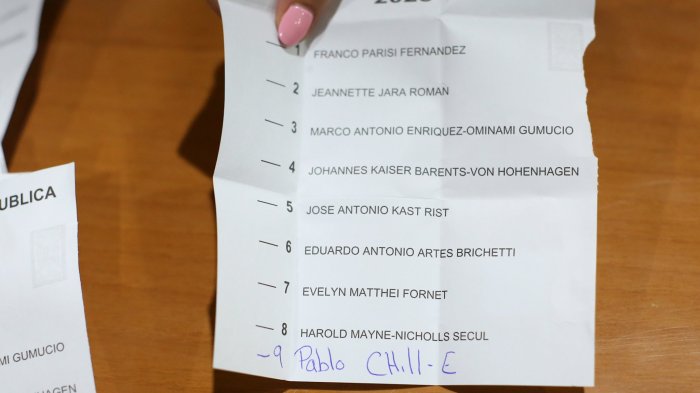 2025
— 1 FRANCO PARISI FERNANDEZ
— 2 JEANNETTE JARA ROMAN
— 3 MARCO ANTONIO ENRIQUEZ-OMINAMI GUMUCIO
— 4 JOHANNES KAISER BARENTS-VON HOHENHAGEN
— 5 JOSE ANTONIO KAST RIST
— 6 EDUARDO ANTONIO ARTES BRICHETTI
— 7 EVELYN MATTHEI FORNET
— 8 HAROLD MAYNE-NICHOLLS SECUL
-9 Pablo CHill-E
UBLICA
MI GUMUCIO
HENHAGEN